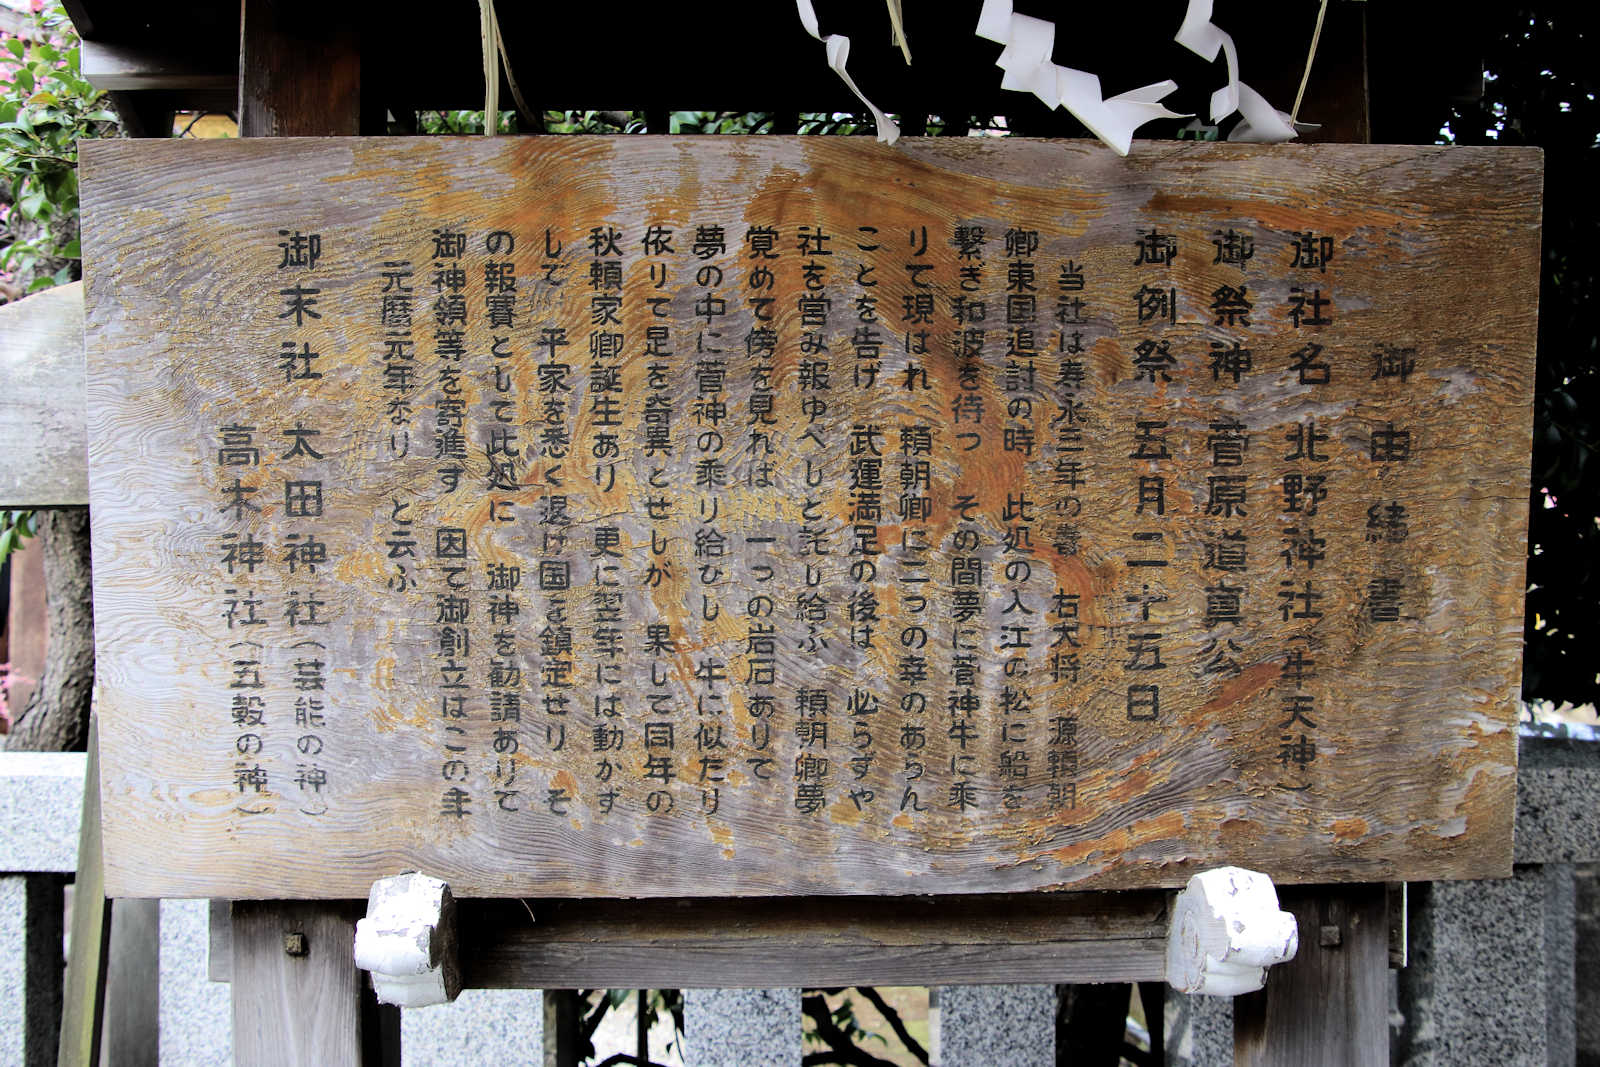 御由緒書
御社名 北野神社(牛天神)
御祭神 菅原道真公
御例祭 五月二十五日
当社は寿永三年の春 右大将 源頼朝
卿東国追討の時 此処の入江の松に船を
繋ぎ和波を待つ その間夢に菅神牛に乗
りて現はれ 頼朝卿に二つの幸のあらん
ことを告げ 武運満足の後は 必らずや
社を営み報ゆべしと託し給ふ 頼朝卿夢
覚めて傍を見れば 一つの岩石ありて
夢の中に菅神の乗り給ひし 牛に似たり
依りて是を奇異とせしが 果して同年の
秋頼家卿誕生あり 更に翌年には動かず
して 平家を悉く退け国を鎮定せり そ
の報賽として此処に 御神を勧請ありて
御神領等を寄進す 因て御創立はこの主
元暦元年なり と云ふ
御末社 太田神社(芸能の神)
高木神社(五穀の神)